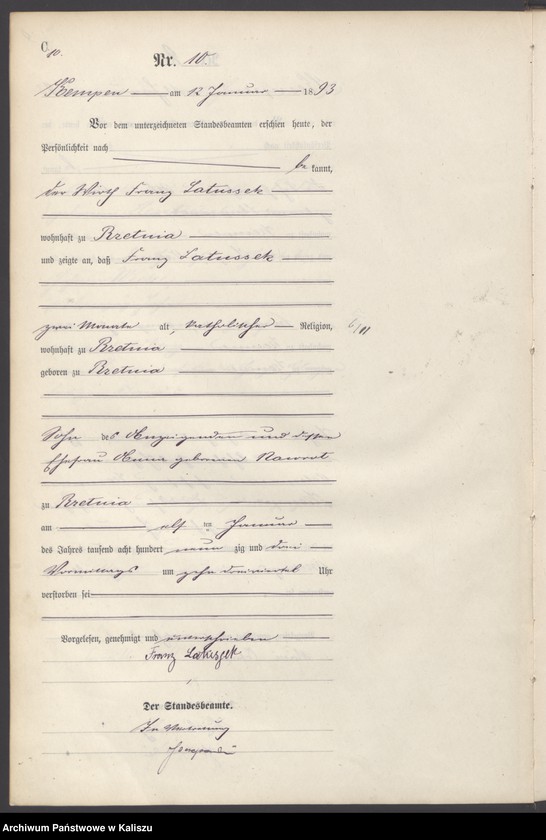 C
10.
Nr. 10.
Kempen am 12 Januar 1893
Vor dem unterzeichneten Standesbeamten erschien heute, der
Persönlichkeit nach
be kannt,
der Wirth Franz Latussek
wohnhaft zu Rzetnia
und zeigte an, daß Franz Latussek
zwei Monate alt, katholischer Religion,
wohnhaft zu Rzetnia
geboren zu Rzetnia
Sohn des Anzeigenden und dessen
Ehefrau Anna geborenen Nawrot
zu Rzetnia
am elf ten Januar
des Jahres tausend acht hundert neun zig und drei
Vormittags um zehn dreiviertel Uhr
verstorben sei
Vorgelesen, genehmigt und unterschrieben
Franz Latuszek
Der Standesbeamte.
In Vertretung
Archiwum Państwowe w Kaliszu